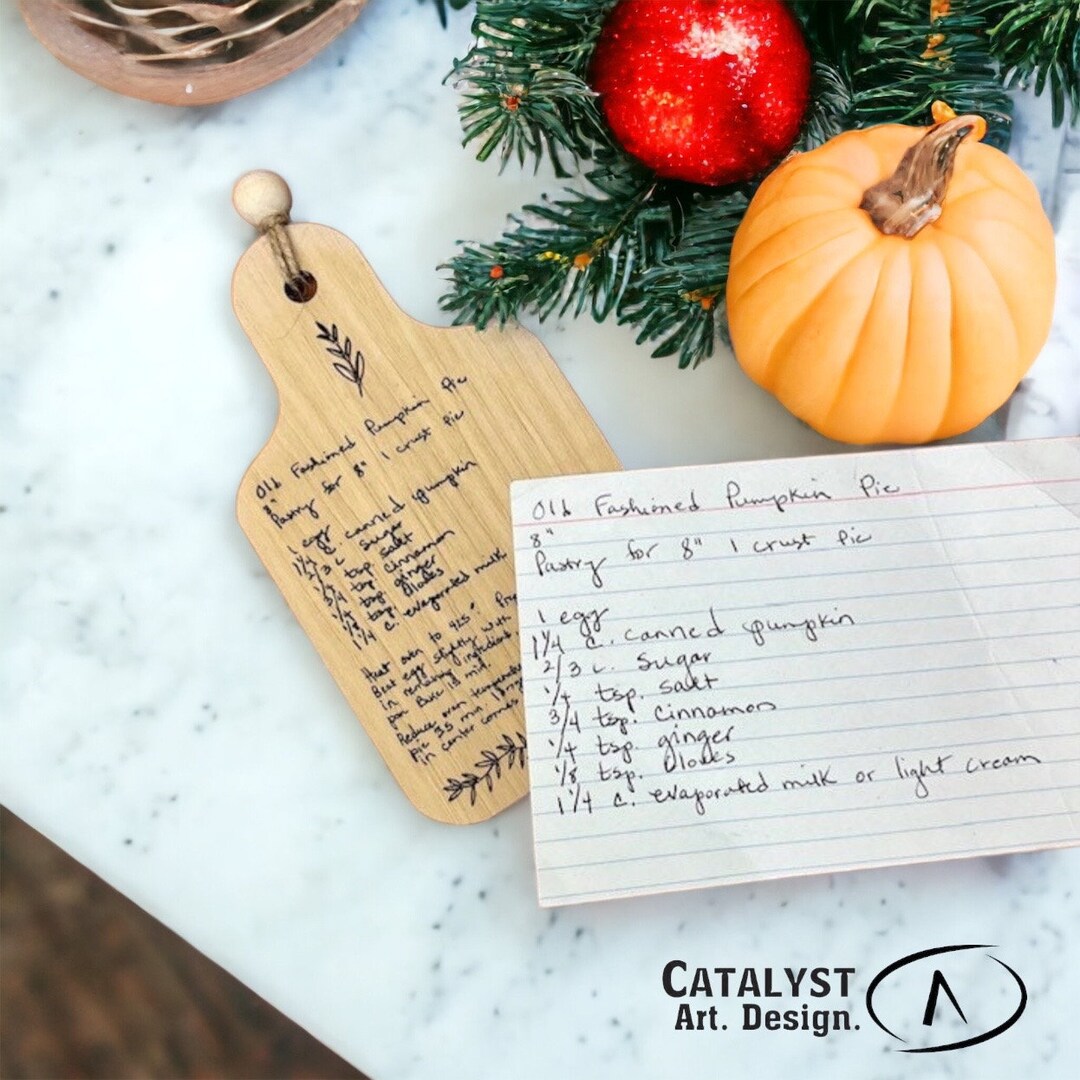 Old Fashioned Pumpkin Pie
8"
Pastry for 8" 1 crust Pie
1 egg
1 1/4 c. canned pumpkin
2/3 c. sugar
1/4 tsp. salt
3/4 tsp. cinnamon
1/4 tsp. ginger
1/8 tsp. cloves
1 1/4 c. evaporated milk
Heat oven to 425°. Pre
Beat egg slightly with
in remaining ingredient
pan. Bake 15 min.
Reduce oven temperatu
Pie 35 min. longer
in center comes
Old Fashioned Pumpkin Pie
8"
Pastry for 8" 1 crust Pie
1 egg
1 1/4 c. canned pumpkin
2/3 c. sugar
1/4 tsp. salt
3/4 tsp. cinnamon
1/4 tsp. ginger
1/8 tsp. cloves
1 1/4 c. evaporated milk or light cream
CATALYST
Art. Design.